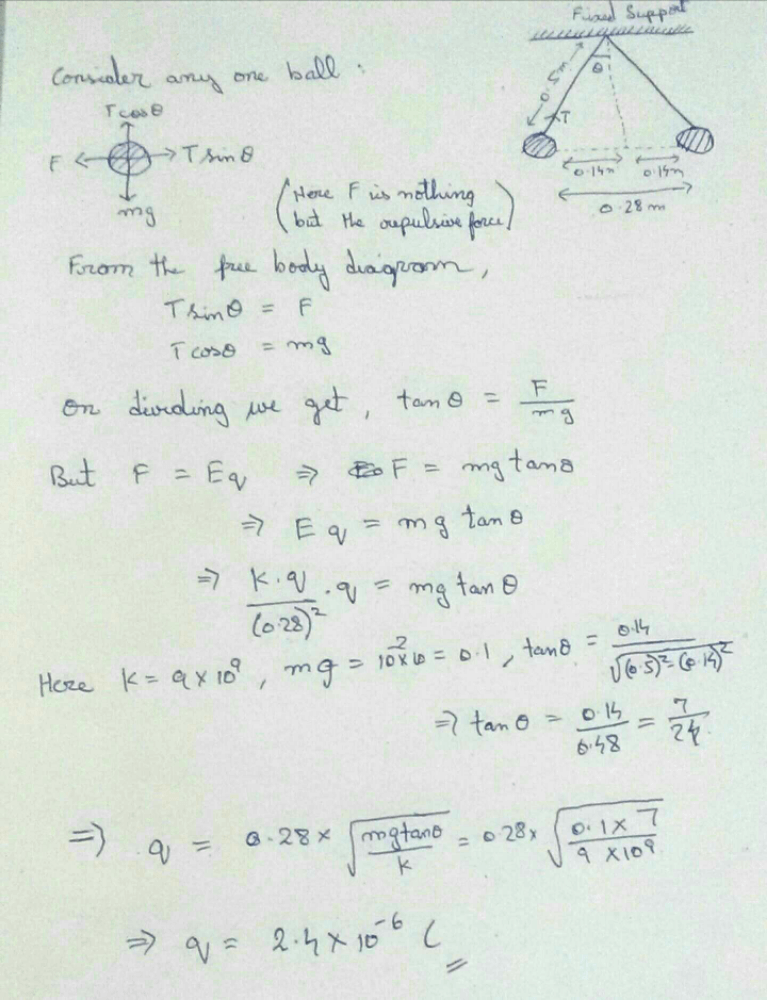 Fixed Support
Consider any one ball :
θ
0.5m
T
0.14m 0.14m
0.28 m
Tcosθ
F T sin θ
mg
(Here F is nothing
but the repulsive force)
From the free body diagram,
T sin θ = F
T cosθ = mg
On dividing we get, tan θ = F/mg
But F = Eq ⇒ F = mg tanθ
⇒ Eq = mg tan θ
⇒ K.q/(0.28)² . q = mg tan θ
Here K = 9 × 10⁹, mg = 10⁻² × 10 = 0.1, tanθ = 0.14/√((0.5)² - (0.14)²)
⇒ tan θ = 0.14/0.48 = 7/24
⇒ q = 0.28 × √(mg tanθ/K) = 0.28 × √(0.1 × 7/9 × 10⁹)
⇒ q = 2.4 × 10⁻⁶ C